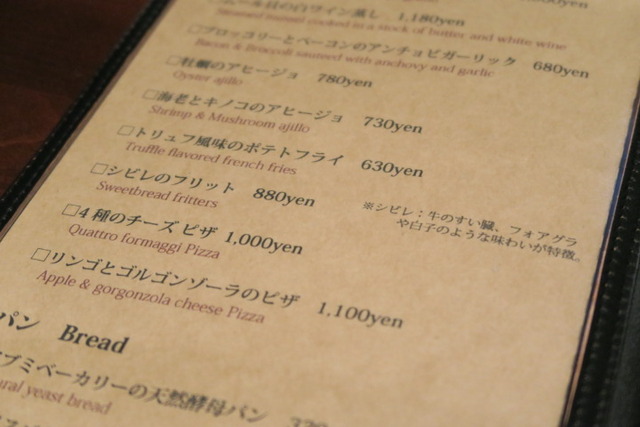 ール貝の白ワイン蒸し 1,180yen
Steamed mussel cooked in a stock of butter and white wine
□ブロッコリーとベーコンのアンチョビガーリック 680yen
Bacon & Broccoli sauteed with anchovy and garlic
□牡蠣のアヒージョ 780yen
Oyster ajillo
□海老とキノコのアヒージョ 730yen
Shrimp & Mushroom ajillo
□トリュフ風味のポテトフライ 630yen
Truffle flavored french fries
□シビレのフリット 880yen
Sweetbread fritters
※シビレ：牛のすい臓、フォアグラ
や白子のような味わいが特徴。
□4種のチーズ ピザ 1,000yen
Quattro formaggi Pizza
□リンゴとゴルゴンゾーラのピザ 1,100yen
Apple & gorgonzola cheese Pizza
パン Bread
ブミベーカリーの天然酵母パン
ural yeast bread